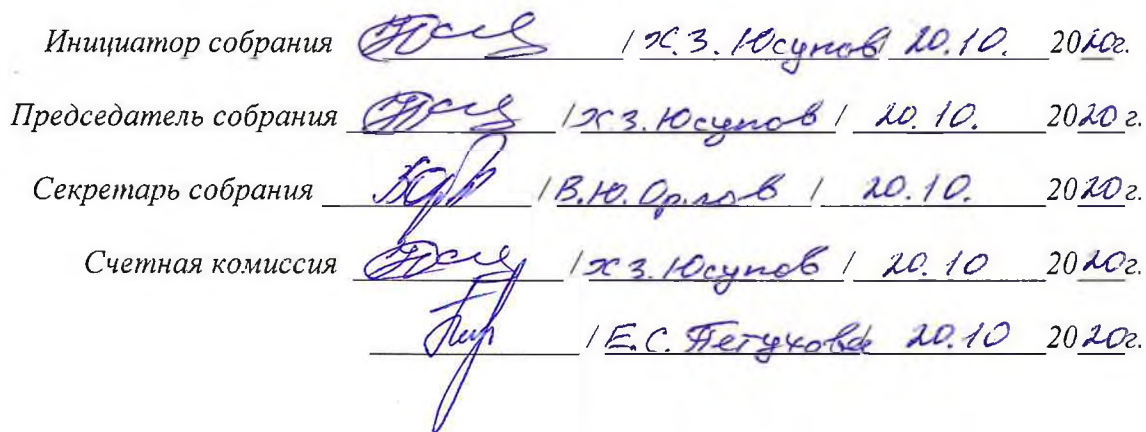 Инициатор собрания / Х.З. Юсупов / 20.10. 2020г.
Председатель собрания / Х.З. Юсупов / 20.10. 2020г.
Секретарь собрания / В.Ю. Орлов / 20.10. 2020г.
Счетная комиссия / Х.З. Юсупов / 20.10 2020г.
/ Е.С. Петухова 20.10 2020г.